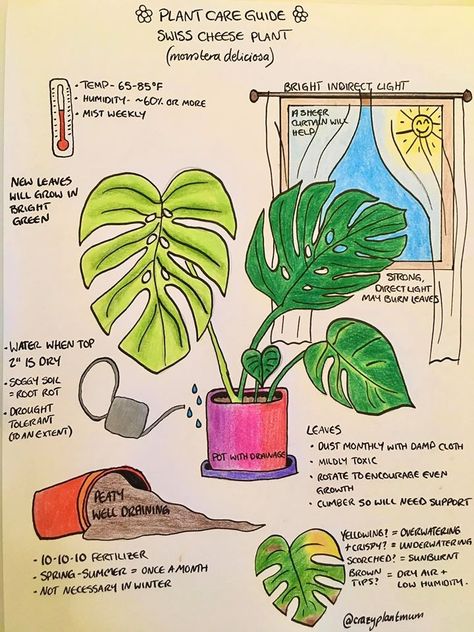 PLANT CARE GUIDE
SWISS CHEESE PLANT
(monstera deliciosa)
• TEMP- 65-85°F
• HUMIDITY- ~60% OR MORE
• MIST WEEKLY
BRIGHT INDIRECT LIGHT
A SHEER
CURTAIN WILL
HELP
NEW LEAVES
WILL GROW IN
BRIGHT
GREEN
STRONG,
DIRECT LIGHT
MAY BURN LEAVES
• WATER WHEN TOP
2" IS DRY
• SOGGY SOIL
= ROOT ROT
• DROUGHT
TOLERANT
(TO AN EXTENT)
POT WITH DRAINAGE
LEAVES
• DUST MONTHLY WITH DAMP CLOTH
• MILDLY TOXIC
• ROTATE TO ENCOURAGE EVEN
GROWTH
• CLIMBER SO WILL NEED SUPPORT
PEATY
WELL DRAINING
• 10-10-10 FERTILIZER
• SPRING-SUMMER = ONCE A MONTH
• NOT NECESSARY IN WINTER
YELLOWING? = OVERWATERING
+ CRISPY? = UNDERWATERING
SCORCHED? = SUNBURNT
BROWN TIPS? = DRY AIR + LOW HUMIDITY.
@crazyplantmum